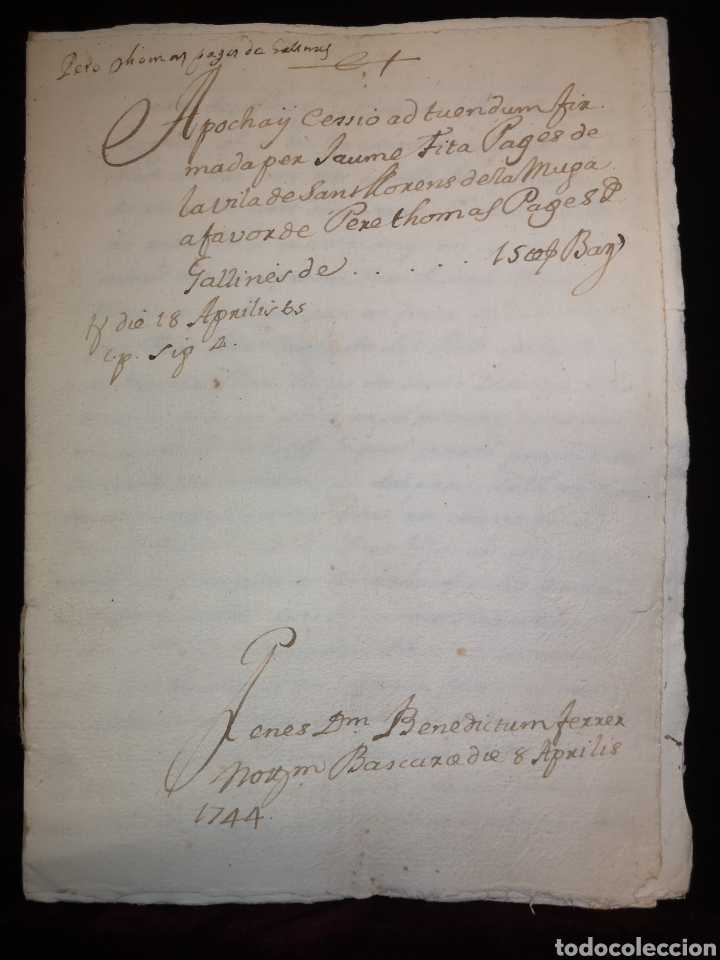 Pere Thomas pages de Gallines
Apocha y Cessio ad tuendum fir
mada per Jaume Fita Pages de
la vila de Sant Llorens de la Muga
a favor de Pere thomas Pages de
Gallines de . . . . . . 15
die 18 Aprilis
c.p. sig 4.
Penes Dm Benedictum ferrer
Notrm Bascaræ die 8 Aprilis
1744
todocoleccion